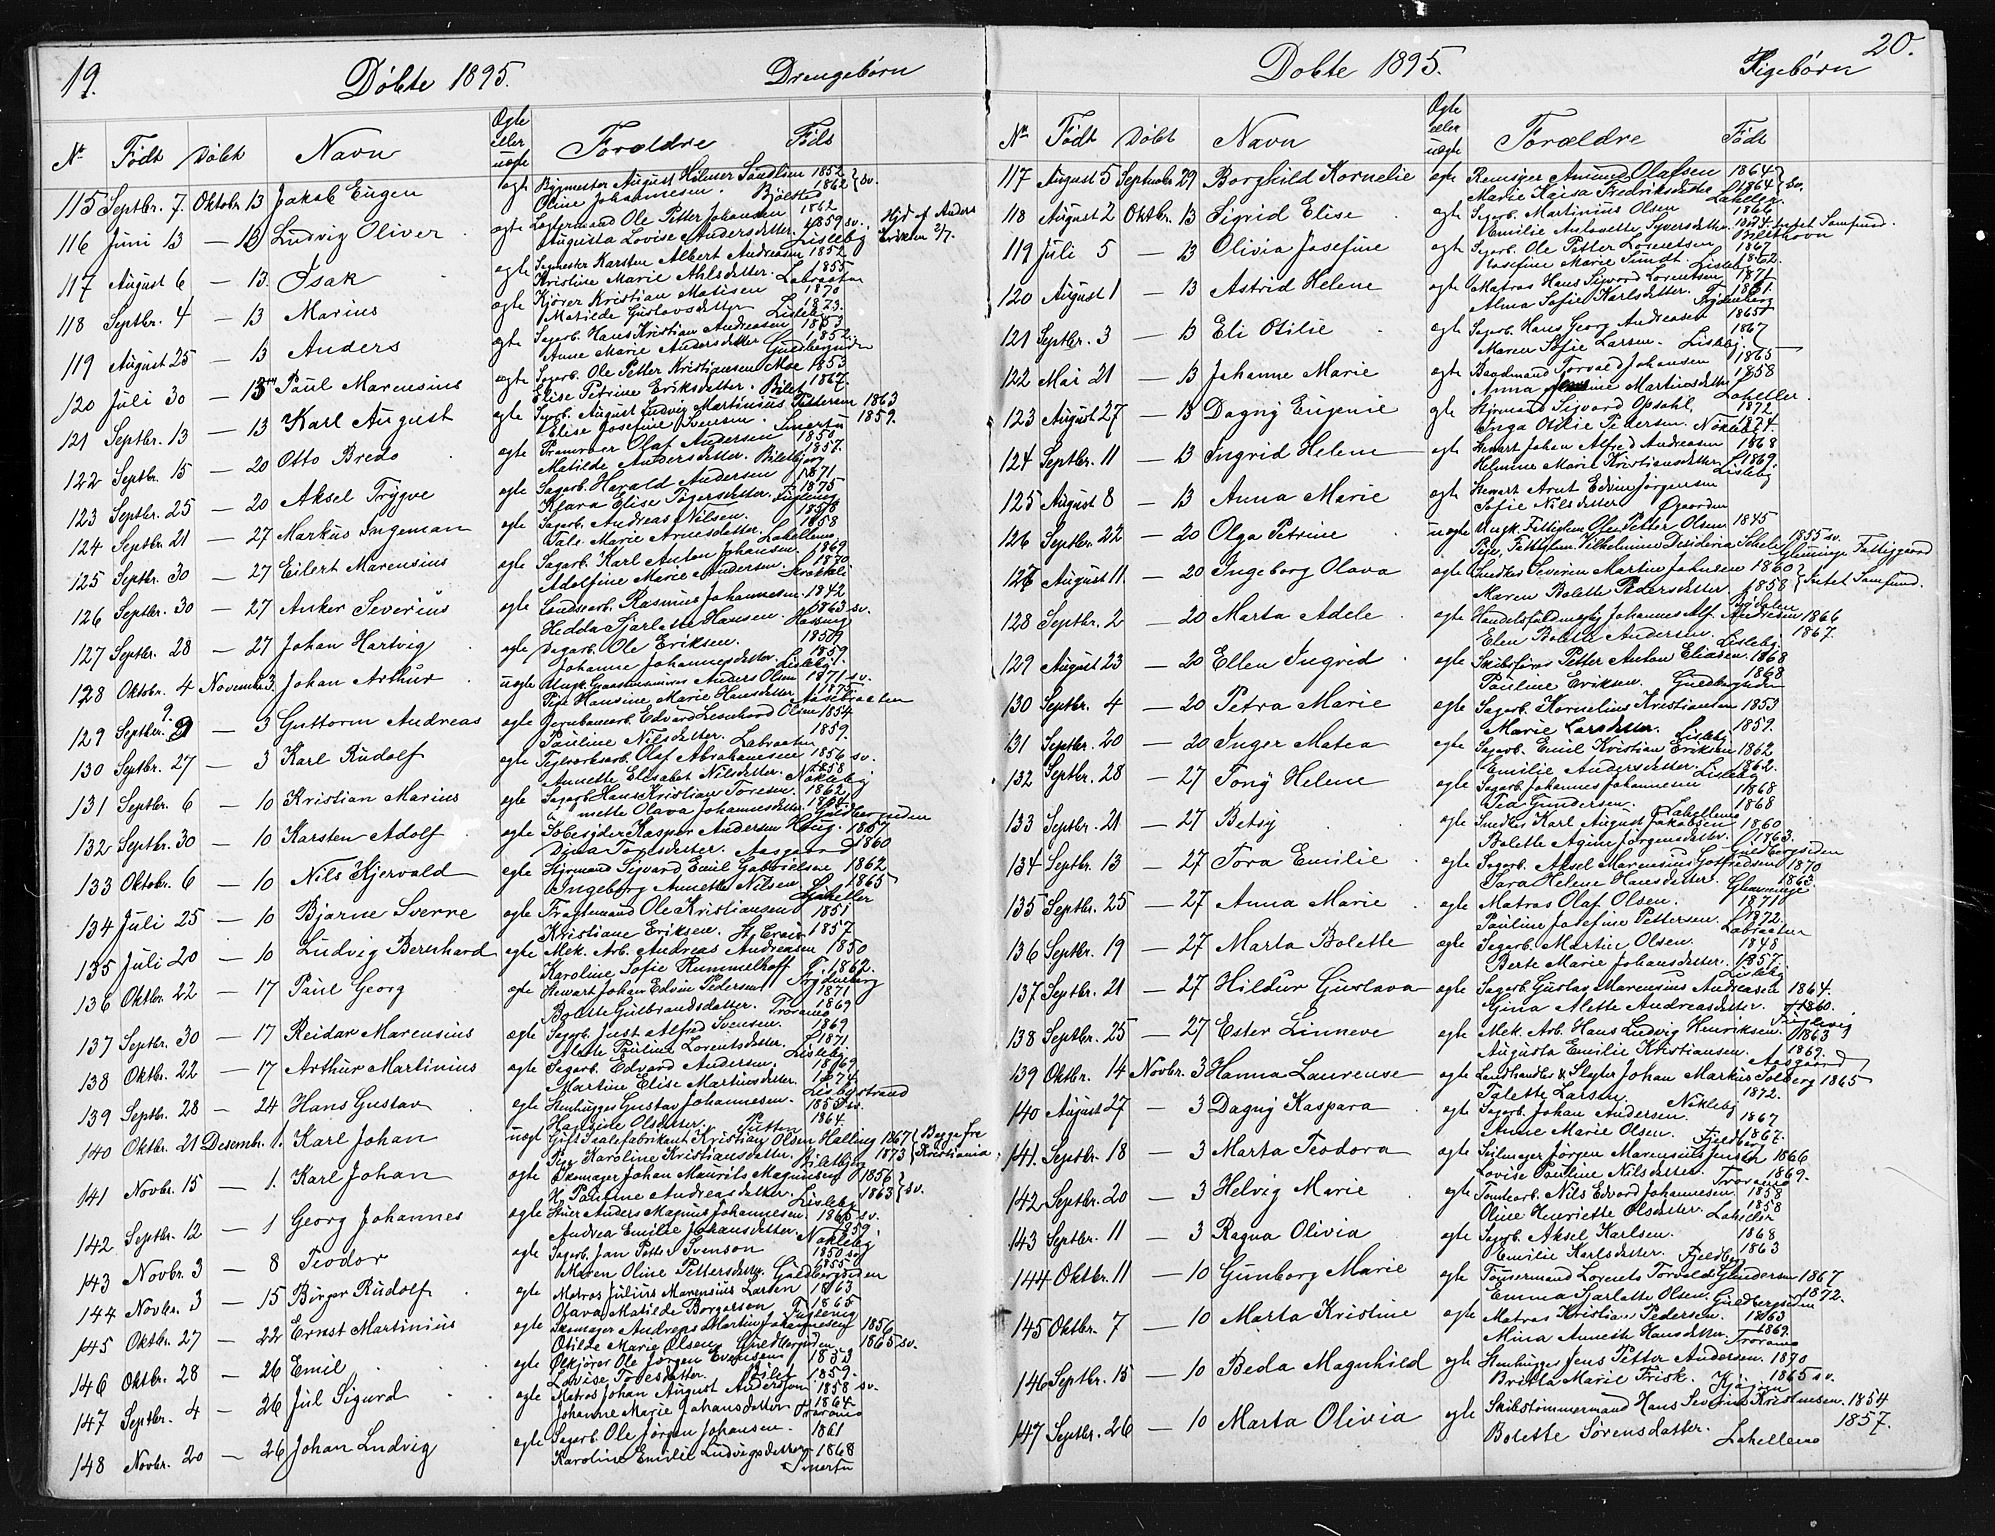 19.
Døbte 1895.
Drengebørn
Nr Født Døbt Navn Ægte eller uægte Forældre Føds
115 Septbr. 7. Oktobr. 13 Jakob Eugen ægte Bygmester August Hilmer 1852
Oline Johannesen. 1862 sv.
116 Juni 13 — 13 Ludvig Oliver ægte Ole Petter Johansen 1862
Augusta Lovise Andersdatter. 1859 sv. Hjd. af Anders Eriksen 2/7.
117 August 6 — 13. Isak ægte Karsten Albert Andreasen 1852
Kristine Marie 1855
118 Septbr. 4 — 13 Marius ægte Kjører Kristian Matisen 1870
Matilde Gustavsdatter 1873.
119 August 25 — 13 Anders ægte Sagarb. Hans Kristian Andreasen 1853
Anne Marie Andersdatter 1852.
120 Juli 30 — 13 Paul Marensius ægte Sagarb. Ole Petter Kristiansen Moe 1853
Elise Petrine Eriksdatter. 1867.
121 Septbr. 13 — 13 Karl August ægte Sagarb. August Ludvig Martinius Pettersen 1863
Elise Josefine Svensen. Smertu 1859.
122 Septbr. 15 — 20 Otto Bredo ægte Olaf Andersen 1850
Matilde Andersdatter. 1857.
123 Septbr. 25 — 20 Aksel Trygve ægte Sagarb. Harald Andersen 1871
Klara Elise 1875
124 Septbr. 21 — 27 Markus Ingeman ægte Sagarb. Andreas Nilsen. 1858
Tale Marie Arnesdatter. Lahellene 1858
125 Septbr. 30 — 27 Eilert Marensius ægte Sagarb. Karl Anton Johansen. 1869
Adolfine Marie Andersen. 1870
126 Septbr. 30 — 27 Anker Severius ægte Rasmus Johannesen. 1842
Hedda Sjarlotte Hansen. 1863 sv.
127 Septbr. 28 — 27 Johan Hartvig ægte Sagarb. Ole Eriksen. 1859
Johanne Johannesdatter. Lisleby. 1859.
128 Oktobr. 4 Novembr. 3. Johan Arthur uægte Ungk. Anders Olsen 1871 sv.
Pige Hansine Marie Hansdatter 1875
129 Septbr. 9. — 3 Guttorm Andreas ægte Jernbanearb. Edvard Leonhard Olsen 1854
Pauline Nilsdatter. Labraaten 1859.
130 Septbr. 27 — 3 Karl Rudolf ægte Teglverksarb. Olaf Abrahamsen 1856 sv.
Annette Elisabet Nilsdatter. Nøkleby 1858
131 Septbr. 6 — 10 Kristian Marius ægte Sagarb. Hans Kristian Toresen. 1862
Olava Johannesdatter.
132 Septbr. 30 — 10 Karsten Adolf ægte Kasper Andersen Haug. 1857
Dina Aasgaard 1860
133 Oktobr. 6 — 10 Nils Hjervald ægte Styrmand Sigvard Emil Gabrielsen 1862
Ingeborg Annette Nilsen 1865
134 Juli 25 — 10 Bjarne Sverre ægte Fragtemand Ole Kristiansen 1851
Kristiane Eriksen. St. Croix 1857
135 Juli 20 — 10 Ludvig Bernhard ægte Mek. Arb. Andreas Andreasen 1850
Karoline Sofie Rummelhoff 1862.
136 Oktbr. 22 — 17 Paul Georg ægte Stewart Johan Edvin Pedersen 1871
Bolette Gulbrandsdatter. Traraen 1869
137 Septbr. 30 — 17 Reidar Marensius ægte Sagarb. Just Alfred Svensen. 1869
Alette Pauline Lorentsdatter. Lisleby 1871
138 Oktbr. 22 — 17 Arthur Martinius ægte Sagarb. Edvard Andersen. 1869
Martine Elise Martinsdatter.
139 Septbr. 28 — 24 Hans Gustav ægte Stenhugger Gustav Johannesen.
Olsdatter. Putten 1864.
140 Oktbr. 21 Desembr. 1. Karl Johan uægt Gift Saalefabrikant Kristian Olsen Halling 1867 Begge fra Kristiania
Pige Karoline Kristiansdatter. 1873
141 Novbr. 15 — 1. Karl Johan ægte Skomager Johan Maurits Magnussen 1856
Pauline Andreasdatter. Lisleby 1863 sv.
142 Septbr. 12 — 1 Georg Johannes ægte Anders Magnus Johannesen. 1866 sv.
Andrea Emilie Johansdatter. Nøkleby 1859
143 Novbr. 3 — 8 Teodor ægte Sagarb. Jan Svenson 1850 sv.
Maren Oline Pettersdatter. Guldbergsiden 1855
144 Novbr. 3 — 15 Birger Rudolf ægte Matros Julius Marensius Larsen 1863
Olava Matilde Borgersen 1865
145 Oktbr. 27 — 22 Ernst Martinius ægte Skomager Andreas Martin Johannesen 1856
Otilde Marie Olsen. Guldbergsiden 1865 sv.
146 Oktbr. 28 — 26 Emil ægte Ølkjører Ole Jørgen Evensen 1853
Lovise 1859.
147 Septbr. 4 — 26 Jul Sigurd ægte Matros Johan August Andersson 1858 sv.
Johanne Marie Johansdatter 1864
148 Novbr. 20 — 26 Johan Ludvig ægte Sagarb. Ole Jørgen Johansen. 1861
Karoline Emilie Ludvigsdatter 1868
Smertu
20.
Døbte 1895.
Pigebørn
Nr Født Døbt Navn Ægte eller uægte Forældre Født
117 August 5 Septembr. 29 Borghild Kornelie ægte Amund Olafsen 1864
Marie Kaisa Fredriksdatter 1864 sv. Lahellen
118 August 2 Oktbr. 13 Sigrid Elise ægte Sagarb. Martinius Olsen 1864
Emilie Antonette Syversdatter. 1874. intet Samfund.
119 Juli 5 — 13 Olivia Josefine ægte Sagarb. Ole Petter Lorentsen 1867
Josefine Marie Sundt. Lisleby 1862.
120 August 1 — 13 Astrid Helene ægte Matros Hans Sigvard Lorentsen 1871
Alma Sofie Karlsdatter.
121 Septbr. 3 — 13 Eli Otilie ægte Sagarb. Hans Georg Andreasen 1865
Maren Sofie Larsen. Lisleby 1867
122 Mai 21 — 13 Johanne Marie ægte Baadmand Torvald Johansen 1865
Anna Martinsdatter. Laheller 1858
123 August 27 — 13 Dagny Eugenie ægte Styrmand Sigvard Opsahl, 1872
Inga Otilie Pedersen. Nøkleby 1874.
124 Septbr. 11 — 13 Ingrid Helene ægte Stewart Johan Alfred Andreasen 1868
Helmine Marie Kristiansdatter. Lisleby 1869.
125 August 8 — 13 Anna Marie ægte Stewart Arnt Edvin Jørgensen
Sofie Nilsdatter
126 Septbr. 22 — 20 Olga Petrine uægte Ungk. Fattiglem Ole Petter Olsen 1845
Pige, Fattiglem Vilhelmine Desideria 1855 sv. Glemminge Fattiggaard
127 August 11. — 20 Ingeborg Olava ægte Snedker Severin Martin Johnsen 1860
Maren Bolette Pedersdatter 1858 Intet Samfund.
128 Septbr. 2 — 20 Marta Adele ægte Johannes Alf. Andresen 1866
Elen Bolette Andersen. Lisleby 1867.
129 August 23 — 20 Ellen Ingrid ægte Skibsfører Petter Anton Eliasen 1868
Pauline Eriksen. Guldbergsiden 1868
130 Septbr. 4 — 20 Petra Marie ægte Sagarb. Kornelius Kristiansen 1853
Marie Larsdatter. Lisleby 1859.
131 Septbr. 20 — 20 Inger Matea ægte Sagarb. Emil Kristian Eriksen 1862
Emilie Andersdatter. Lisleby 1862.
132 Septbr. 28 — 27 Tony Helene ægte Sagarb. Johannes Johannesen 1868
Tea Gundersen. Lahellene 1868
133 Septbr. 21 — 27 Betsy ægte Snedker Karl August Jakobsen 1860
Bolette Agine Jørgensdatter. 1863. Guldbergsiden
134 Septbr. 13 — 27 Tora Emilie ægte Sagarb. Aksel Marensius 1870
Sara Helene Hansdatter. Glemminge 1863
135 Septbr. 25 — 27 Anna Marie ægte Matros Olaf Olsen. 1871
Pauline Josefine Pettersen. Labraaten 1872.
136 Septbr. 19 — 27 Marta Bolette ægte Sagarb. Martin Olsen. 1848
Berte Marie Johansdatter. Lisleby 1857.
137 Septbr. 21 — 27 Hildur Gustava ægte Sagarb. Gustav Marensius Andreasen 1864.
Gina Mette Andreasdatter. 1860.
138 Septbr. 25 — 27 Ester Linneve ægte Mek. Arb. Hans Ludvig Henriksen. 1863
Augusta Emilie Kristiansen. 1869. Aasgaard
139 Oktbr. 14 Novbr. 3 Hanna Laurense ægte Landhandler & Slagter Johan Markus Solberg 1865
Talette Larsen. Nøkleby 1872.
140 August 27 — 3 Dagny Kaspara ægte Sagarb. Johan Andersen. 1867
Anne Marie Olsen. 1867.
141. Septbr. 18 — 3 Marta Teodora ægte Seilmager Jørgen Marensius Jensen 1866
Lovise Pauline Nilsdatter. Traraen 1869.
142 Septbr. 20 — 3 Helvig Marie ægte Tomtearb. Nils Edvard Johannesen. 1858
Oline Henriette Olsdatter. 1858
143 Septbr. 11 — 3 Ragna Olivia ægte Sagarb. Aksel Karlsen. 1868
Emilie Karlsdatter. 1863
144 Oktbr. 11 — 10 Gunborg Marie ægte Lorents Torvald Gundersen 1867
Emma Sjarlotte Olsen. Guldbergsiden 1872.
145 Oktbr. 7 — 10 Marta Kristine ægte Matros Kristian Pedersen. 1863
Mina Annette Hansdatter. 1869.
146 Septbr. 15 — 10 Beda Magnhild ægte Stenhugger Jens Petter Andersen. 1870
Britta Marie Frisk. 1865 sv.
147 Septbr. 26 — 10 Marta Olivia ægte Skibstømmermand Hans Severin Kristensen. 1854
Bolette Sørensdatter. Lahellene 1857.